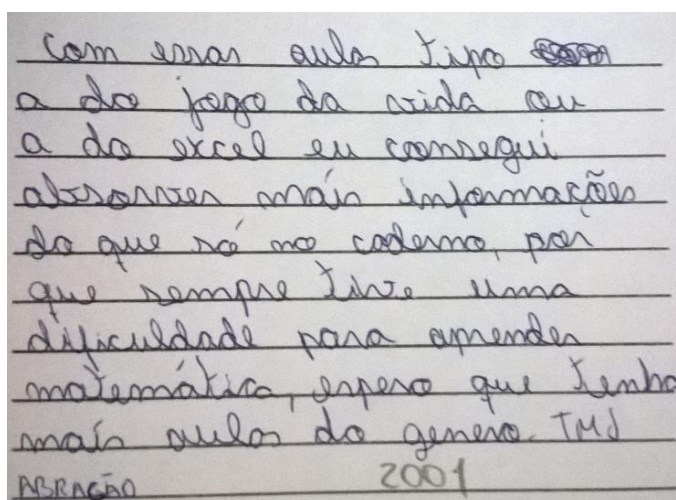 Com essas aulas tipo
a do jogo da vida ou
a do excel eu consegui
absorver mais informações
do que só no caderno, por
que sempre tive uma
dificuldade para aprender
matemática, espero que tenha
mais aulas do genero. TMJ
ABRAÇÃO 2001